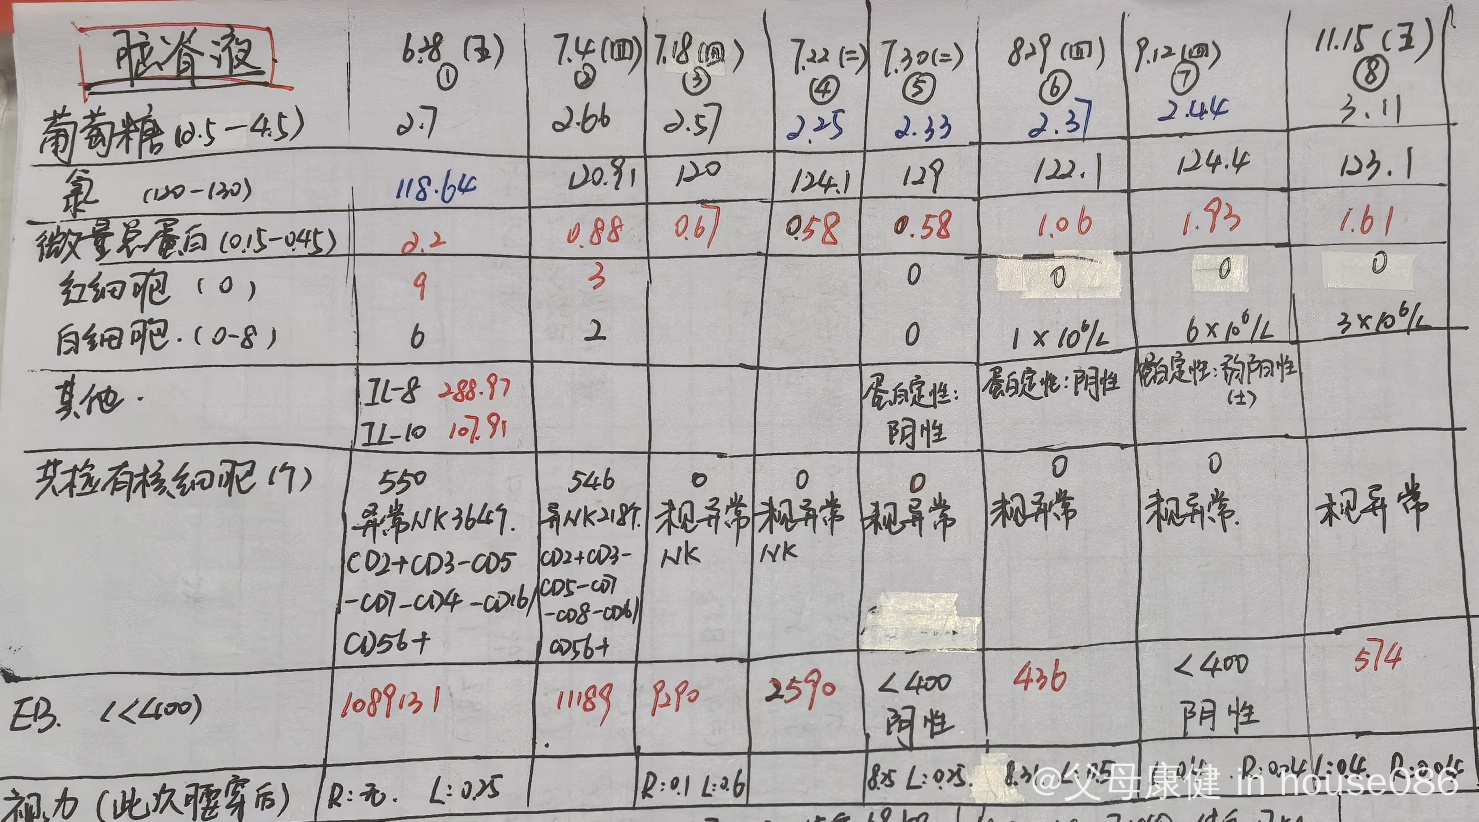 脑脊液 6.28(五) 7.4(四) 7.18(四) 7.22(二) 7.30(二) 8.29(四) 9.12(四) 11.15(五)
① ② ③ ④ ⑤ ⑥ ⑦ ⑧
葡萄糖(2.5-4.5) 2.7 2.66 2.57 2.25 2.33 2.37 2.44 3.11
氯 (120-130) 118.64 120.91 120 124.1 129 122.1 124.4 123.1
微量总蛋白(0.15-0.45) 2.2 0.88 0.67 0.58 0.58 1.06 1.93 1.61
红细胞 (0) 9 3 0 0 0 0
白细胞.(0-8) 6 2 0 1×10⁶/L 6×10⁶/L 3×10⁶/L
其他. IL-8 288.97 蛋白定性: 蛋白定性:阴性 蛋白定性:弱阳性
IL-10 107.91 阴性 (±)
共检有核细胞(个) 550 546 0 0 0 0 0
异常NK364个. 异NK218个. 未见异常 未见异常 未见异常 未见异常 未见异常. 未见异常
CD2+CD3-CD5 CD2+CD3- NK NK
-CD7-CD4-CD16/ CD5-CD7
-CD8-CD16/
CD56+ CD56+
EB. (<400) 1089131 11189 9290 2590 <400 436 <400 574
阴性 阴性
视力(此次腰穿后) R:无. L:0.25 R:0.1 L:0.6 8.25 L:0.25.
@父母康健 in house086